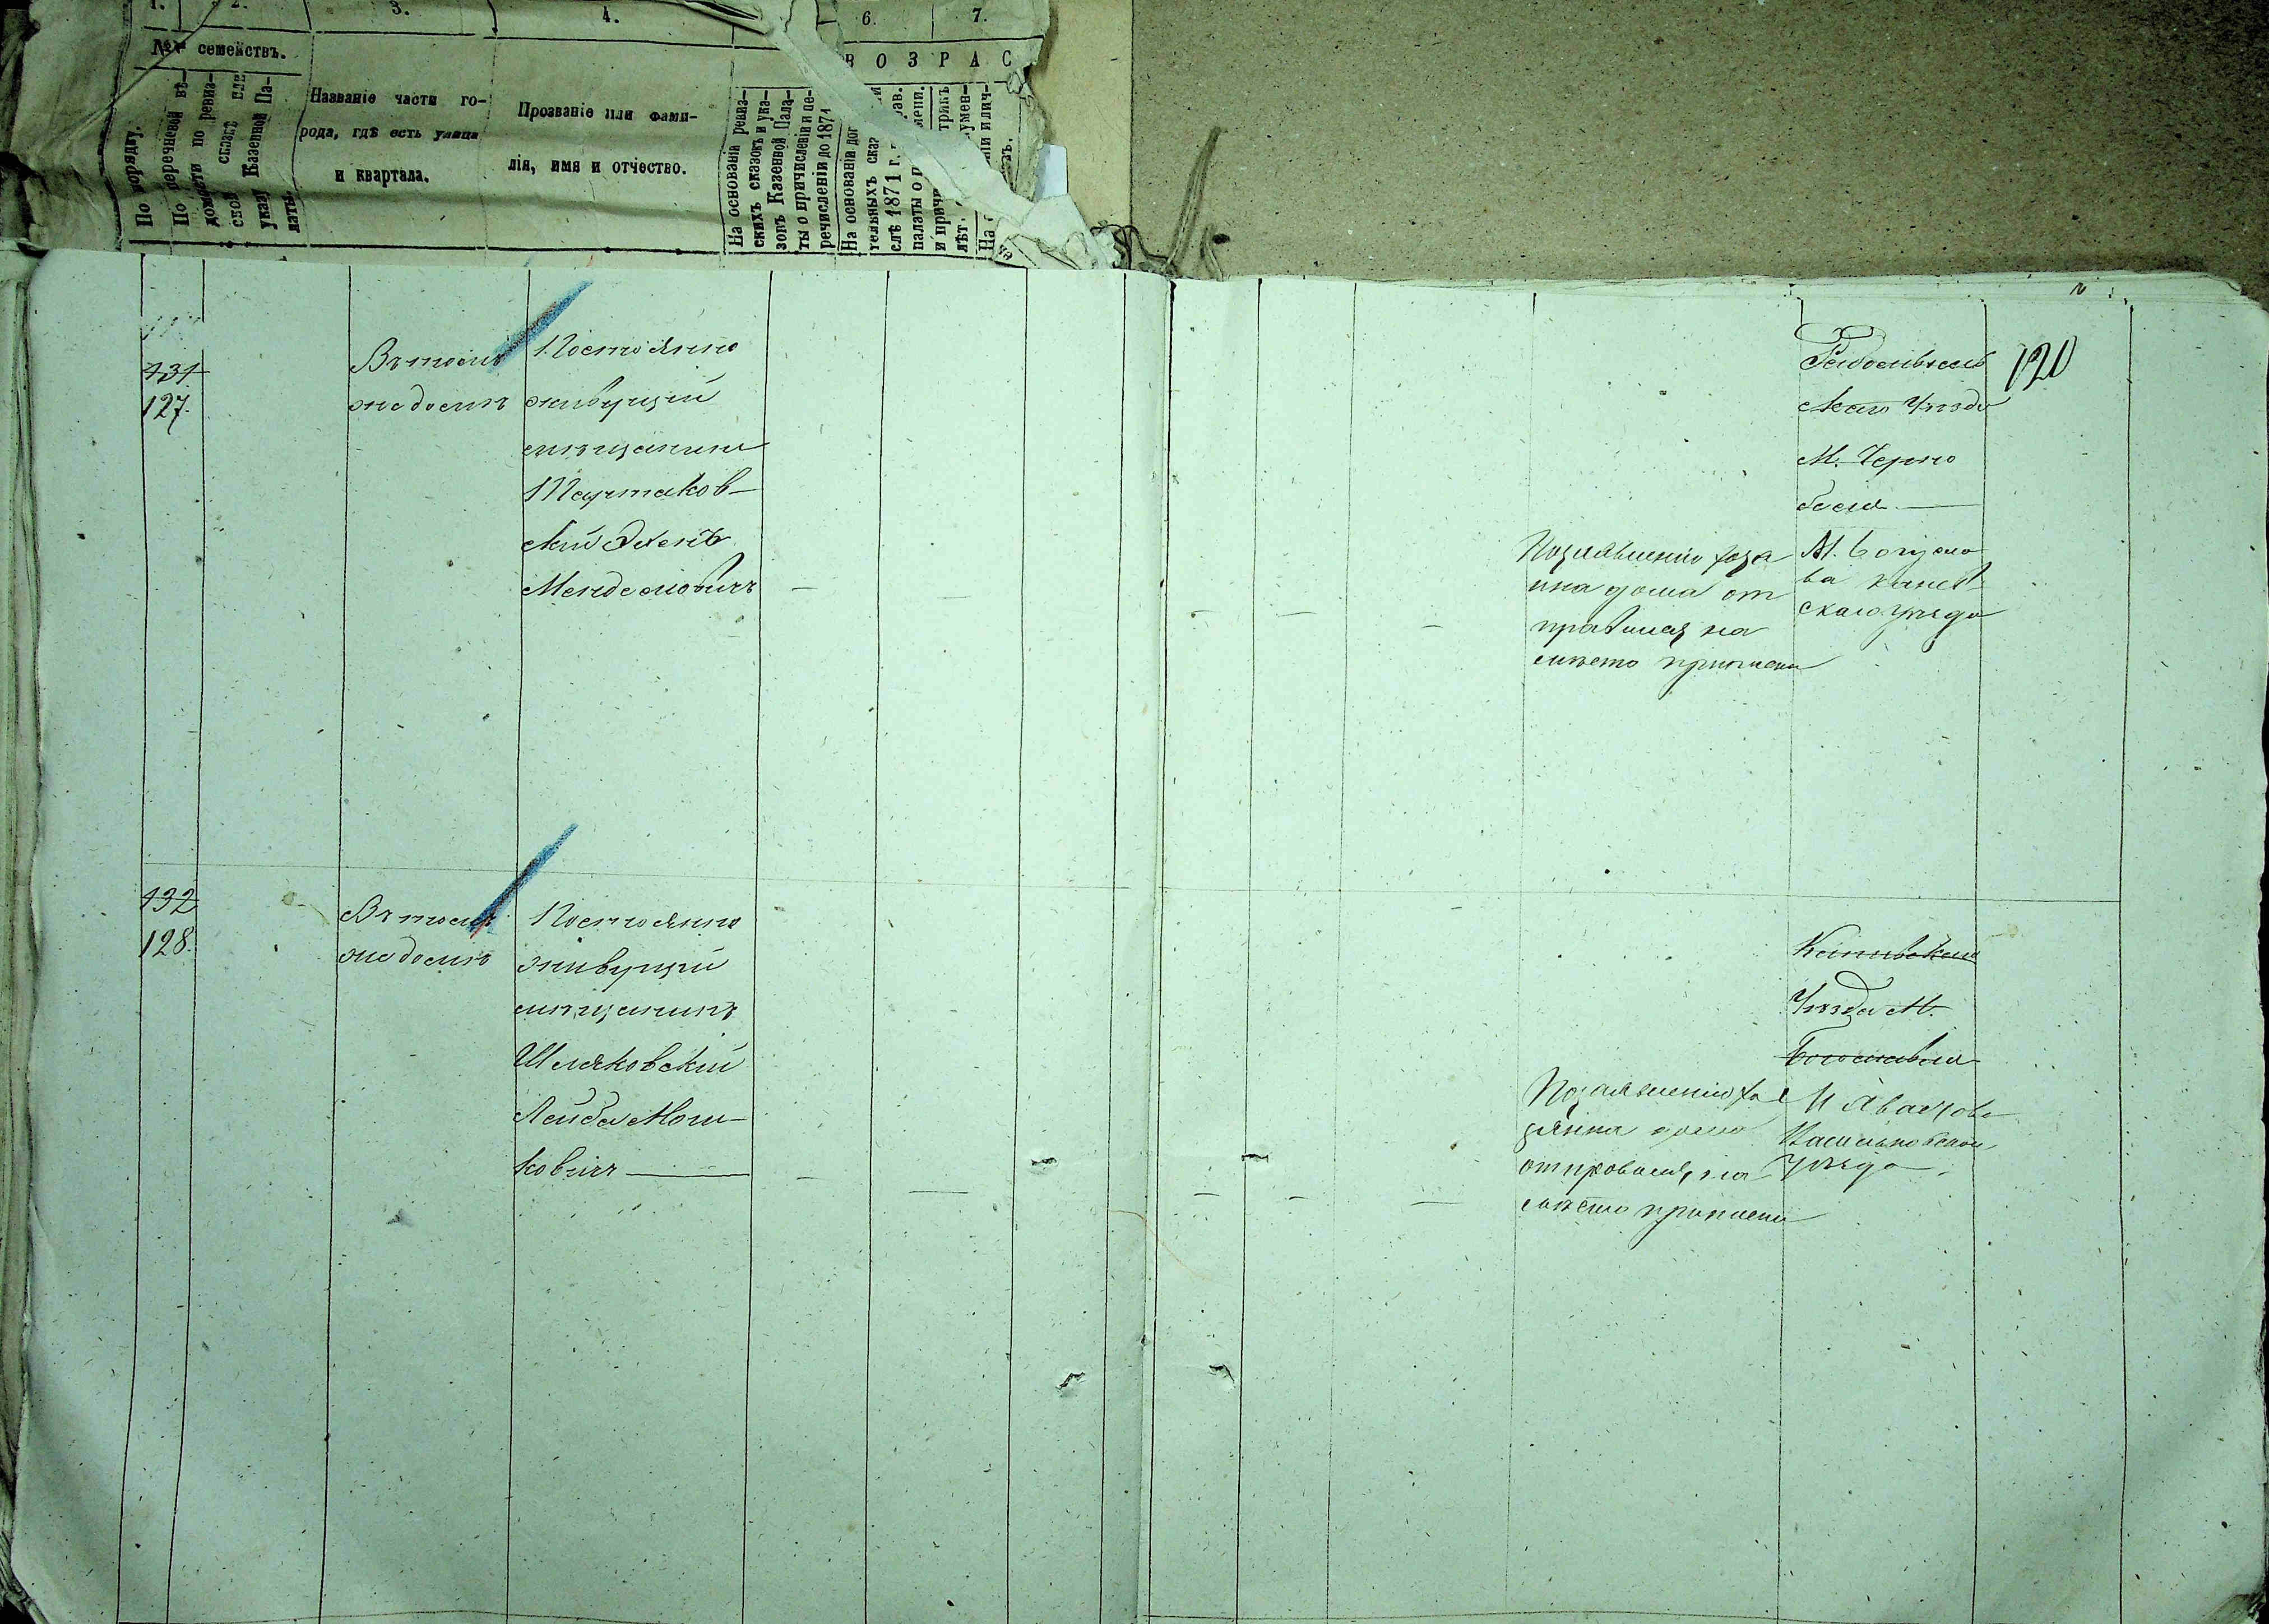 1.
2.
3.
4.
6.
7.
№№ семействъ.
ВОЗРАС
По порядку.
По перечневой вѣ-
домости по ревиз-
ской сказкѣ или
указу Казенной Па-
латы.
Названіе части го-
рода, гдѣ есть улица
и квартала.
Прозваніе или фами-
лія, имя и отчество.
На основаніи ревиз-
скихъ сказокъ и ука-
зовъ Казенной Пала-
ты о причисленіи и пе-
речисленіи до 1871
На основаніи доп
тельныхъ сказ
слѣ 1871 г.
палаты о р
и причи
лѣт
На
120
131
127.
Въ томъ
же домѣ
Постоянно
живущій
мѣщанинъ
Партаков-
скій Эхенъ
Менделовичъ
По заявленію хозя
ина дома от
правился на
мѣсто приписки
Радомысль
скаго Уѣзда
М. Черно
быля
М. Богусла
ва Канев
скаго уѣзда
132
128.
Въ томъ
же домѣ
Постоянно
живущій
мѣщанинъ
Шляковскій
Лейба Мош-
ковичъ
По заявленію хо
зяина дома
отправился на
мѣсто приписки
Каневскаго
Уѣзда М.
Богославля
Васильковскаго
уѣзда